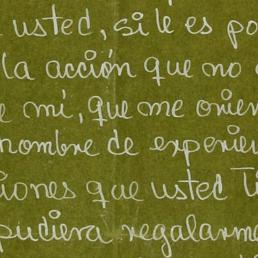 usted, si le es po
la acción que no
e mí, que me orien
nombre de experien
iones que usted Ti
pudiera regalarme